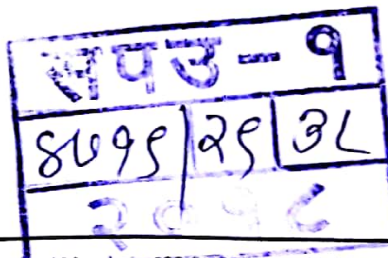 सपउ - १
४७१९ | २९ | ३८
२०१८